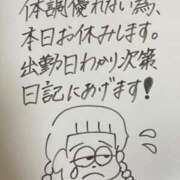 体調優れない為、
本日お休みします。
出勤日わかり次第
日記にあげます!